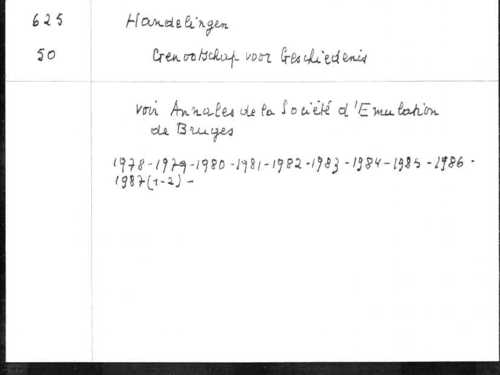 625 Handelingen
50 Genootschap voor Geschiedenis
voir Annales de la Société d'Emulation
de Bruges
1978 - 1979 - 1980 - 1981 - 1982 - 1983 - 1984 - 1985 - 1986 -
1987 (1-2) -